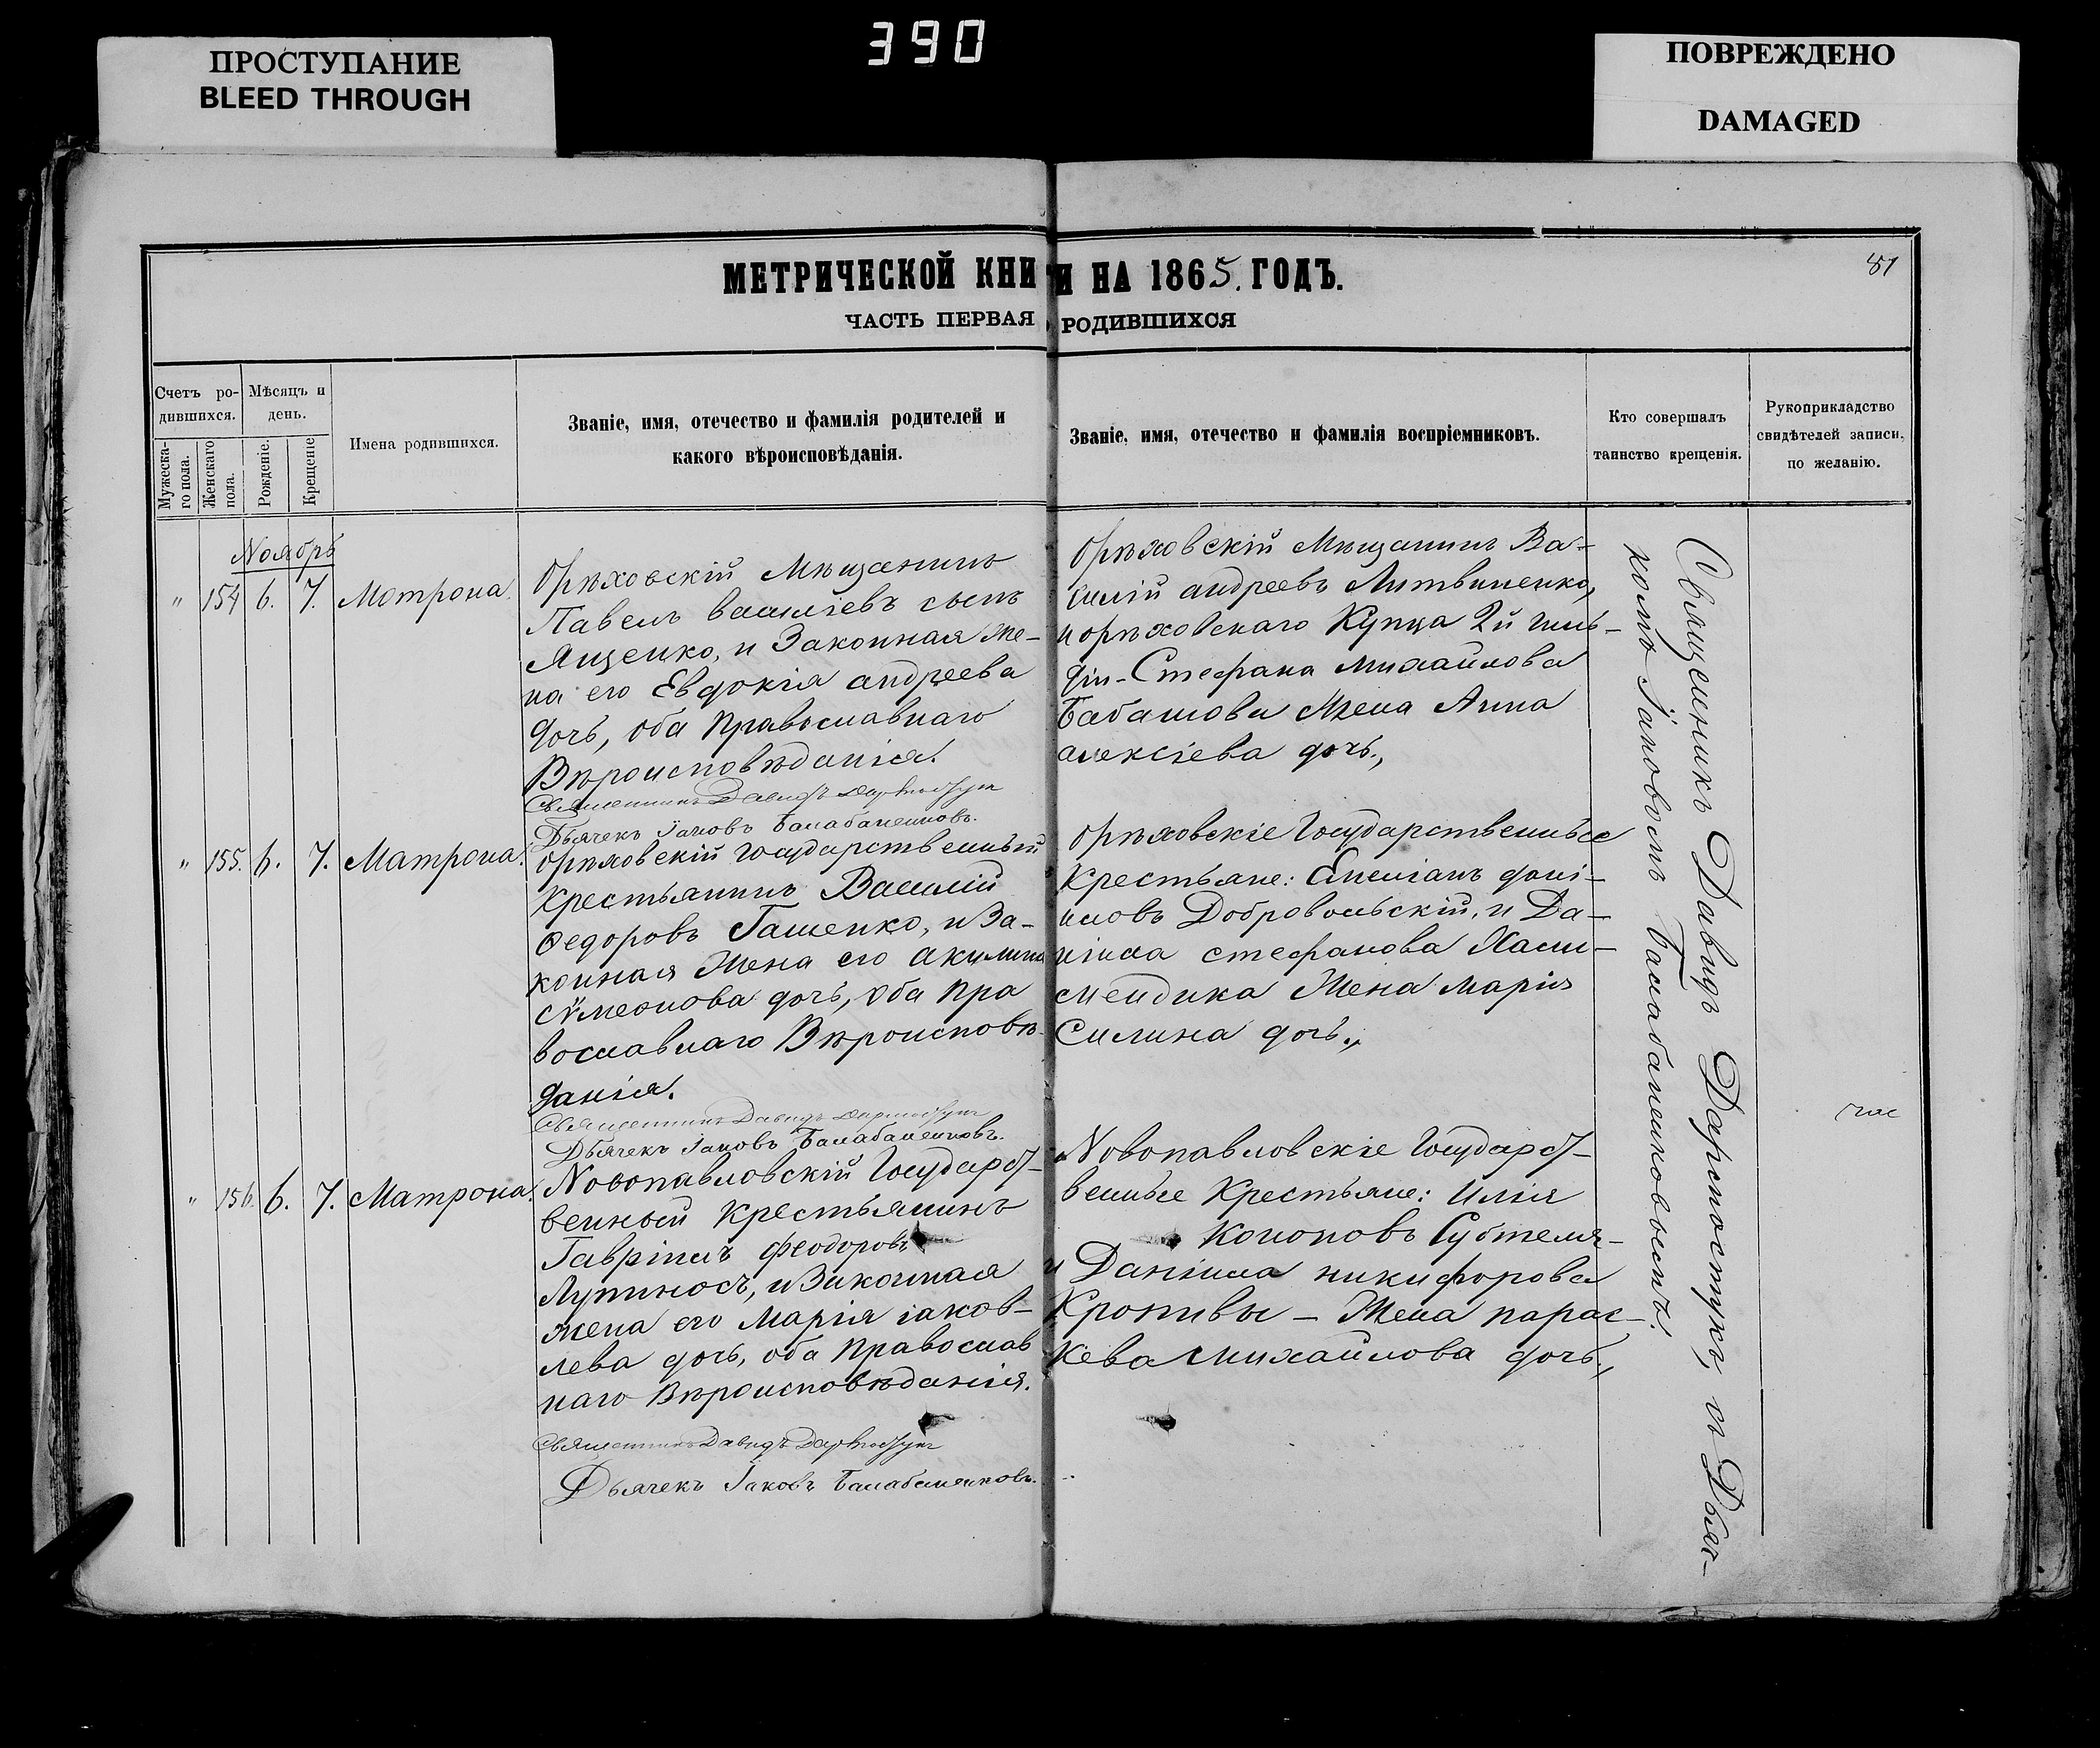 ПРОСТУПАНИЕ
BLEED THROUGH
390
ПОВРЕЖДЕНО
DAMAGED
МЕТРИЧЕСКОЙ КНИГИ НА 1865. ГОДЪ.
81
ЧАСТЬ ПЕРВАЯ О РОДИВШИХСЯ
Счетъ ро-
дившихся.
Мѣсяцъ и
день.
Мужеска-
го пола.
Женскаго
пола.
Рожденіе.
Крещеніе
Имена родившихся.
Званіе, имя, отечество и фамилія родителей и
какого вѣроисповѣданія.
Званіе, имя, отечество и фамилія воспріемниковъ.
Кто совершалъ
таинство крещенія.
Рукоприкладство
свидѣтелей записи,
по желанію.
Ноябрь
" 154 6. 7. Мотрона.
Орѣховскій Мѣщанинъ
Павелъ Василіевъ сынъ
Ященко, и Законная же-
на его Евдокія андреева
дочь, оба Православнаго
Вѣроисповѣданія.
Священникъ Давидъ
Дьячекъ Іаковъ Балабаненковъ.
Орѣховскій Мѣщанинъ Ва-
силій андреевъ Литвиненко,
и орѣховскаго Купца 2й гиль-
діи Стефана Михайлова
Бабашова Жена Анна
алексіева дочь.,
" 155. 6. 7. Матрона.
Орѣховскій Государственный
Крестьянинъ Василій
Ѳедоровъ Гашенко, и За-
конная Жена его Акилина
Сѵмеонова дочь, оба Пра
вославнаго Вѣроисповѣ-
данія.
Священникъ Давидъ
Дьячекъ Іаковъ Балабаненковъ.
Орѣховскіе Государственные
Крестьяне: Емеліанъ
Добровольскій, и Да-
ніила стефанова
Жена Марія
Силина дочь.,
" 156. 6. 7. Матрона.
Новопавловскій Государст-
венный Крестьянинъ
Гавріилъ Феодоровъ
Лупиносъ, и Законная
жена его Марія іаков-
лева дочь, оба Православ
наго Вѣроисповѣданія.
Священникъ Давидъ
Дьячекъ Іаковъ Балабаненковъ.
Новопавловскіе Государст-
венные Крестьяне: Илія
Кононовъ
и Даніила никифорова
Кропивы - Жена парас-
кева Михайлова дочь.,
Священникъ Давидъ и Дьяч-
комъ Іаковомъ Балабаненковымъ.